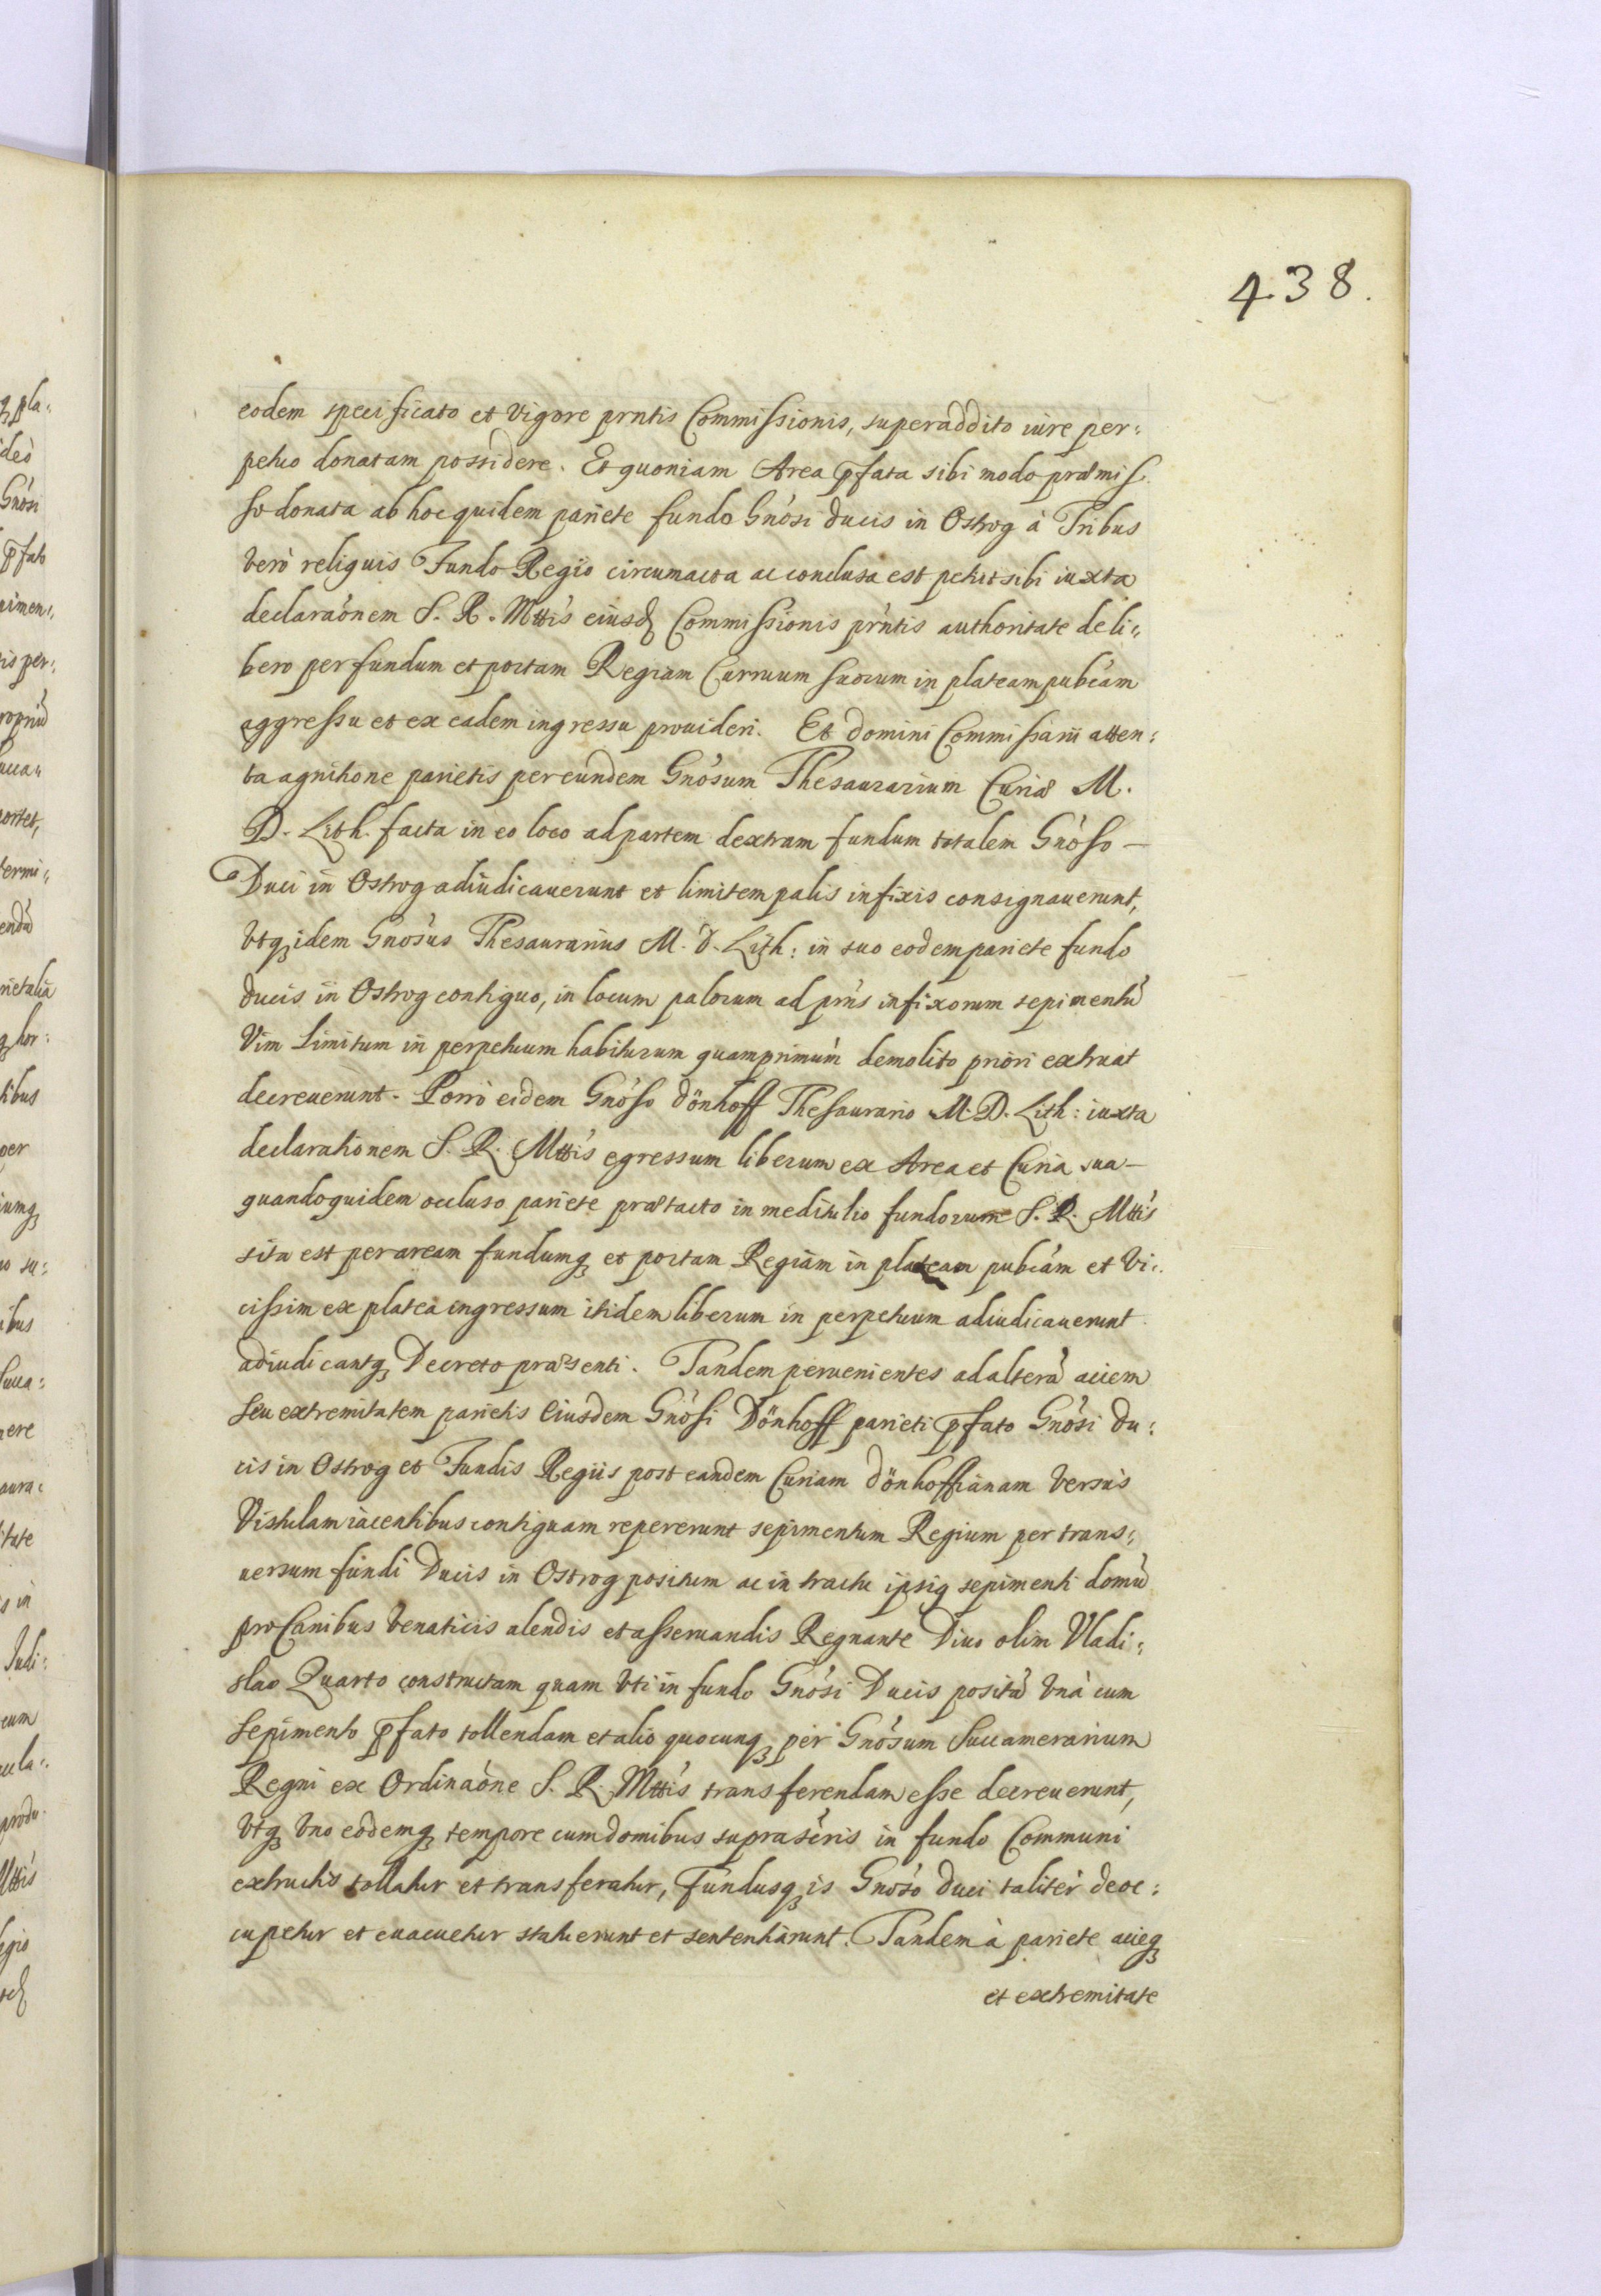 438.
eodem specificato et vigore prntis Commissionis, superaddito iure per:
petuo donatam possidere. Et quoniam Area pfata sibi modo præmis:
so donata ab hoc quidem pariete fundo Gnósi Ducis in Ostrog à Tribus
verò reliquis Fundo Regio circumacta ac conclusa est petit sibi iuxta
declaraónem S. R. Mttis eiusd Commissionis prntis authoritate de li:
bero per fundum et portam Regiam Curruum suorum in plateam pubcám
aggressu et ex eadem ingressu prouideri. Et Domini Commissarii atten:
ta agnitione parietis per eundem Gnósum Thesaurarium Curiæ M.
D. Lith. facta in eo loco ad partem dextram fundum totalem Gnóso —
Duci in Ostrog adiudicauerunt et limitem palis infixis consignauerunt,
Vtq idem Gnósus Thesaurarius M. D. Lith: in suo eodem pariete fundo
ducis in Ostrog contiguo, in locum palorum ad prńs infixorum sepimentú
Vim Limitum in perpetuum habiturum quamprimúm demolito priori extruat
decreuerunt. Porrò eidem Gnóso Dönhoff Thesaurario M. D. Lith: iuxta
declarationem S. R. Mttis egressum liberum ex Area et Curia sua —
quandoquidem occluso pariete prætacto in meditulio fundorum S. R. Mttis
sita est per aream fundumq et portam Regiam in plateam pubcám et Vi:
cissim ex platea ingressum itidem liberum in perpetuum adiudicauerunt
adiudicantq Decreto præsenti. Tandem peruenientes ad alterá aciem
seu extremitatem parietis Eiusdem Gnósi Dönhoff parieti pfato Gnósi Du:
cis in Ostrog et Fundis Regiis post eandem Curiam Dönhoffianam versùs
Vistulam iacentibus contiguam repererunt sepimentum Regium per trans:
uersum fundi Ducis in Ostrog positum ac in tractu ipsiq sepimenti domú
pro Canibus venaticis alendis et asseruandis Regnante Diuo olim Vladi:
slao Quarto constructam quam vti in fundo Gnósi Ducis positá vnà cum
Sepimento pfato tollendam et alio quocunq per Gnósum Succamerarium
Regni ex Ordinaóne S. R. Mttis transferendam esse decreuerunt,
Vtq vno eodemq tempore cum domibus suprasċris in fundo Communi
extructis tollatur et transferatur, Fundusq is Gnóso Duci talitèr deoc:
cupetur et euacuetur statuerunt et sententiàrunt. Tandem à pariete acieq
et extremitate